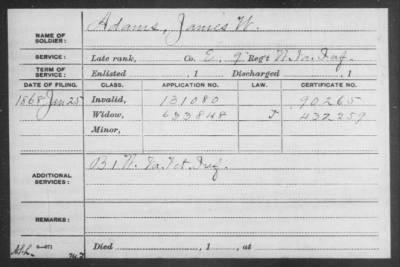 NAME OF SOLDIER: Adams, James W.
SERVICE: Late rank, Co. E, 9 Reg't W. Va. Inf.
TERM OF SERVICE: Enlisted , 1 Discharged , 1
DATE OF FILING. CLASS. APPLICATION NO. LAW. CERTIFICATE NO.
1868 Jan 25 Invalid, 131080 90265
Widow, 633848 437259
Minor,
ADDITIONAL SERVICES: B 1 W. Va. Vet. Inf.
REMARKS:
Died , 1 , at